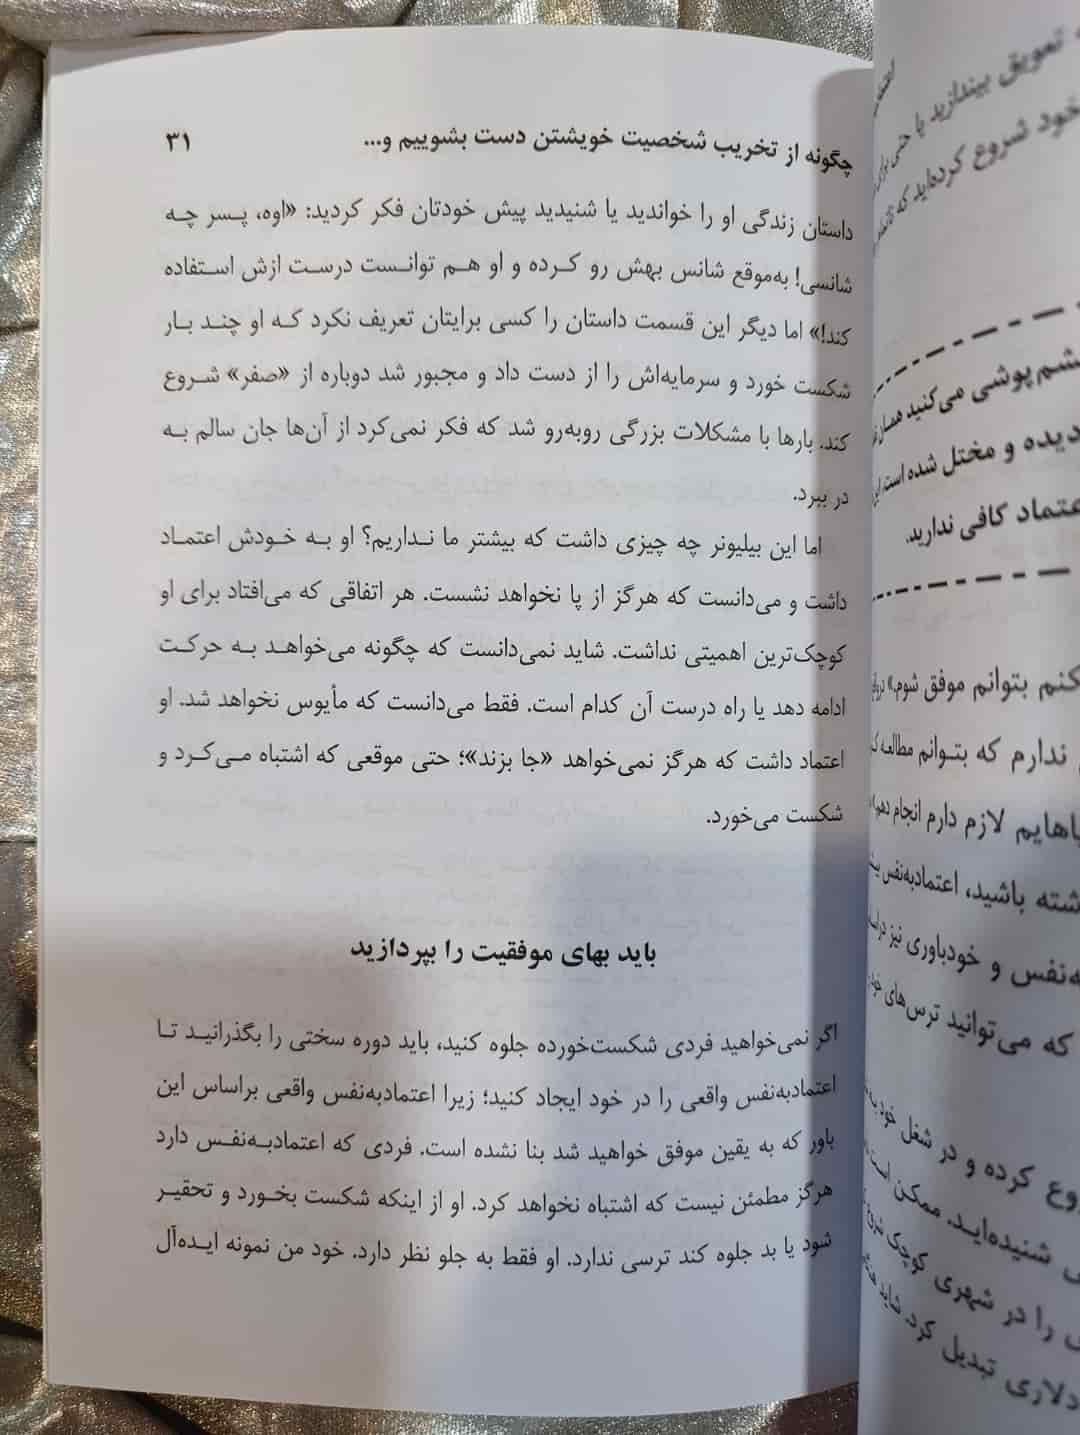 چگونه از تخریب شخصیت خویشتن دست بشوییم و... ۳۱
داستان زندگی او را خواندید یا شنیدید پیش خودتان فکر کردید: «اوه، پسر چه
شانسی! به‌موقع شانس بهش رو کرده و او هم توانست درست ازش استفاده
کند!» اما دیگر این قسمت داستان را کسی برایتان تعریف نکرد که او چند بار
شکست خورد و سرمایه‌اش را از دست داد و مجبور شد دوباره از «صفر» شروع
کند. بارها با مشکلات بزرگی روبه‌رو شد که فکر نمی‌کرد از آن‌ها جان سالم به
در ببرد.
اما این بیلیونر چه چیزی داشت که بیشتر ما نداریم؟ او به خودش اعتماد
داشت و می‌دانست که هرگز از پا نخواهد نشست. هر اتفاقی که می‌افتاد برای او
کوچک‌ترین اهمیتی نداشت. شاید نمی‌دانست که چگونه می‌خواهد به حرکت
ادامه دهد یا راه درست آن کدام است. فقط می‌دانست که مأیوس نخواهد شد. او
اعتماد داشت که هرگز نمی‌خواهد «جا بزند»؛ حتی موقعی که اشتباه می‌کرد و
شکست می‌خورد.
باید بهای موفقیت را بپردازید
اگر نمی‌خواهید فردی شکست‌خورده جلوه کنید، باید دوره سختی را بگذرانید تا
اعتمادبه‌نفس واقعی را در خود ایجاد کنید؛ زیرا اعتمادبه‌نفس واقعی براساس این
باور که به یقین موفق خواهید شد بنا نشده است. فردی که اعتمادبه‌نفس دارد
هرگز مطمئن نیست که اشتباه نخواهد کرد. او از اینکه شکست بخورد و تحقیر
شود یا بد جلوه کند ترسی ندارد. او فقط به جلو نظر دارد. خود من نمونه ایده‌آل
تعویق بیندازید یا حتی برای
خود شروع کرده‌اید که
چشم‌پوشی می‌کنید همسان
دیده و مختل شده است، این
اعتماد کافی ندارید.
کنم بتوانم موفق شوم.»
ندارم که بتوانم مطالعه
لازم دارم انجام دهم»
باشید، اعتمادبه‌نفس
نفس و خودباوری نیز
که می‌توانید ترس‌های
کرده و در شغل خود
شنیده‌اید. ممکن است
را در شهری کوچک شروع
دلاری تبدیل کرد. شاید